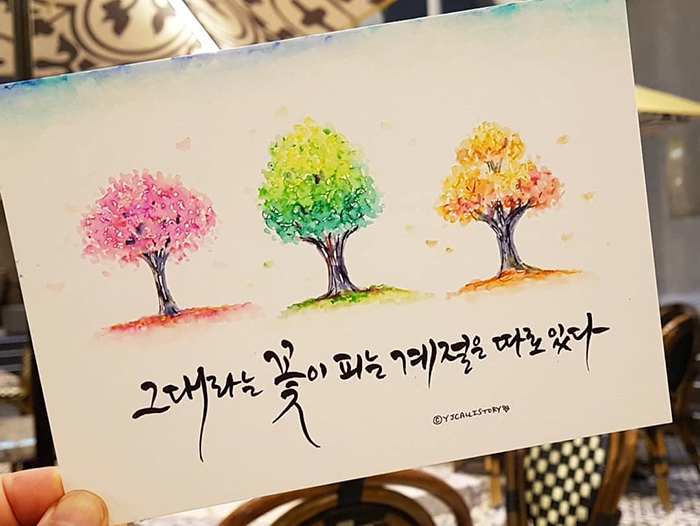 그대라는 꽃이 피는 계절은 따로 있다
©YJCALLISTORY